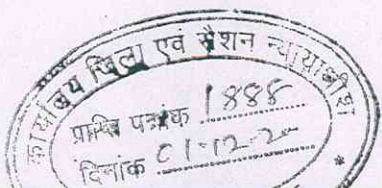 कार्यालय जिला एवं सैशन न्यायाधीश
प्राप्ति पत्रांक 1888
दिनांक 01-12-2
*